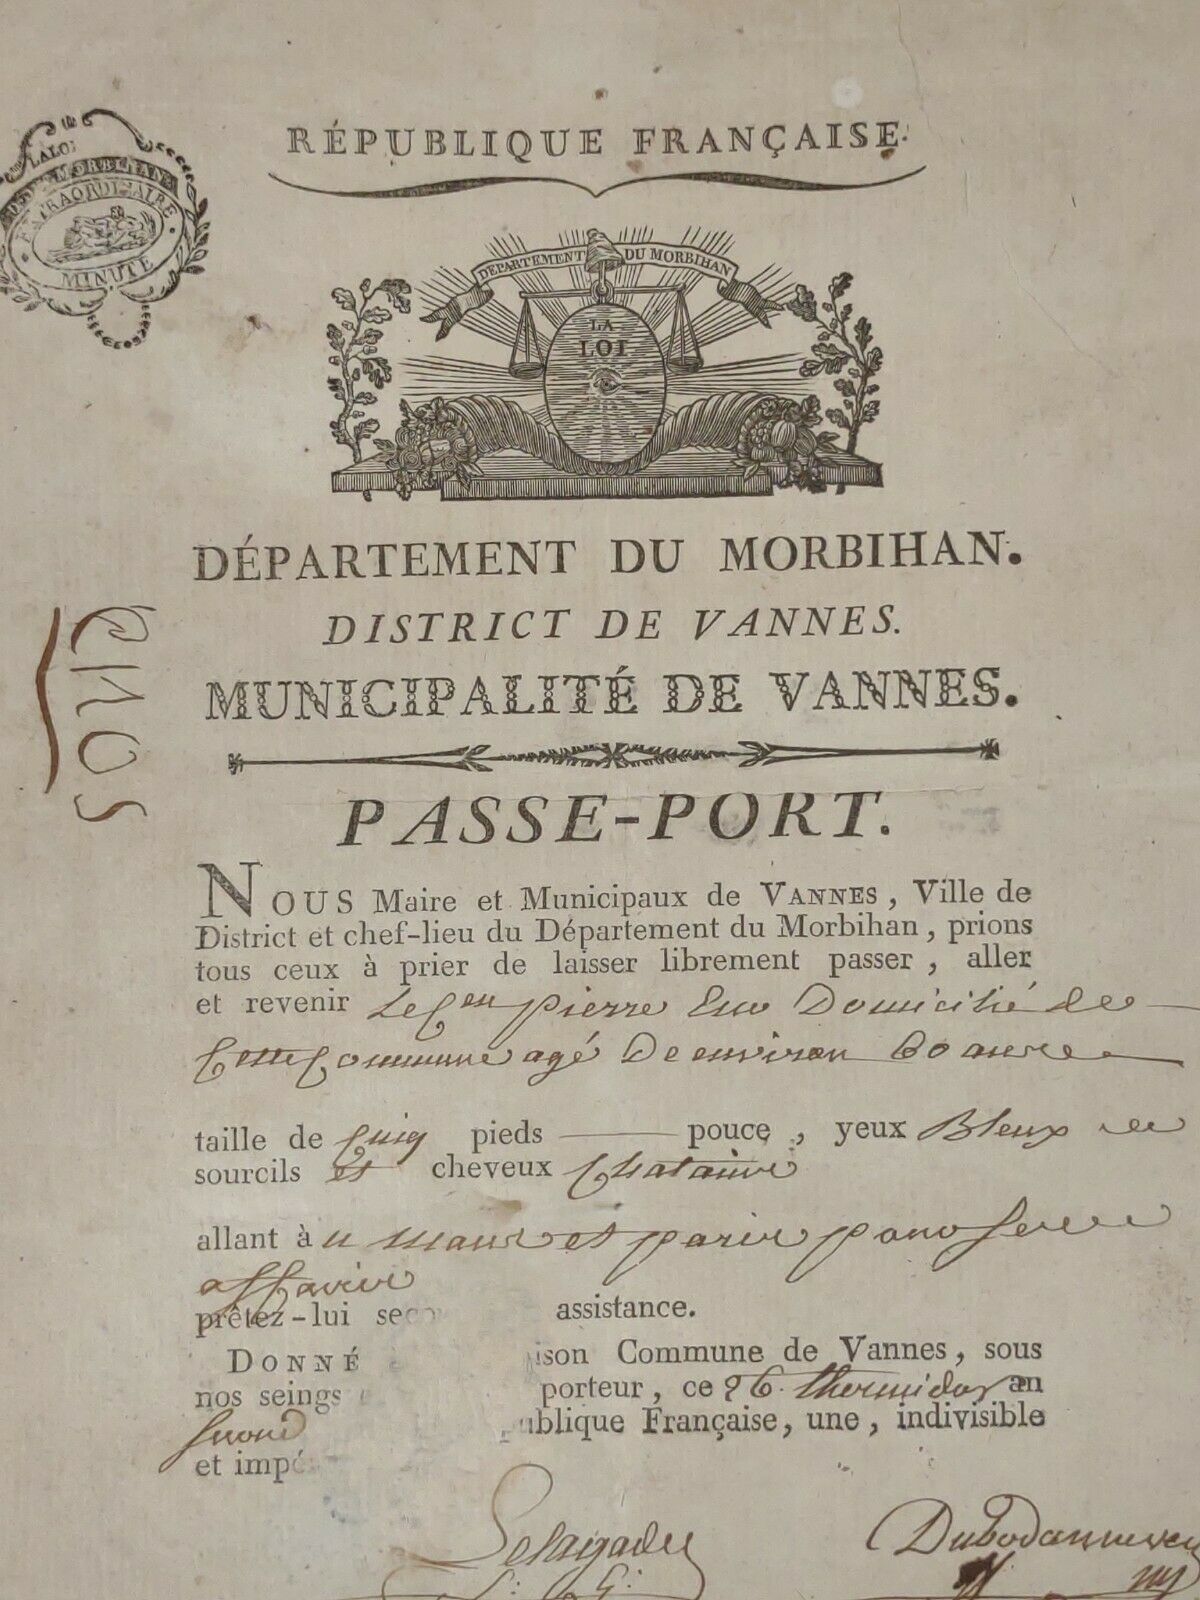 RÉPUBLIQUE FRANÇAISE.
LA LOI
MORBIHAN
EXTRAORDINAIRE
MINUTE
DEPARTEMENT DU MORBIHAN
LA
LOI
DÉPARTEMENT DU MORBIHAN.
DISTRICT DE VANNES.
MUNICIPALITÉ DE VANNES.
PASSE-PORT.
NOUS Maire et Municipaux de VANNES, Ville de
District et chef-lieu du Département du Morbihan, prions
tous ceux à prier de laisser librement passer, aller
et revenir Le Cen pierre Eno Domicilié de
Cette Commune agé De environ 60 ans
taille de Cinq pieds pouce, yeux Bleux
sourcils et cheveux Chataine
allant à u mans et paris pour ses
affaires
prêtez-lui seco assistance.
DONNÉ ison Commune de Vannes, sous
nos seings porteur, ce 26 thermidor an
second publique Française, une, indivisible
et impé
Dubodan